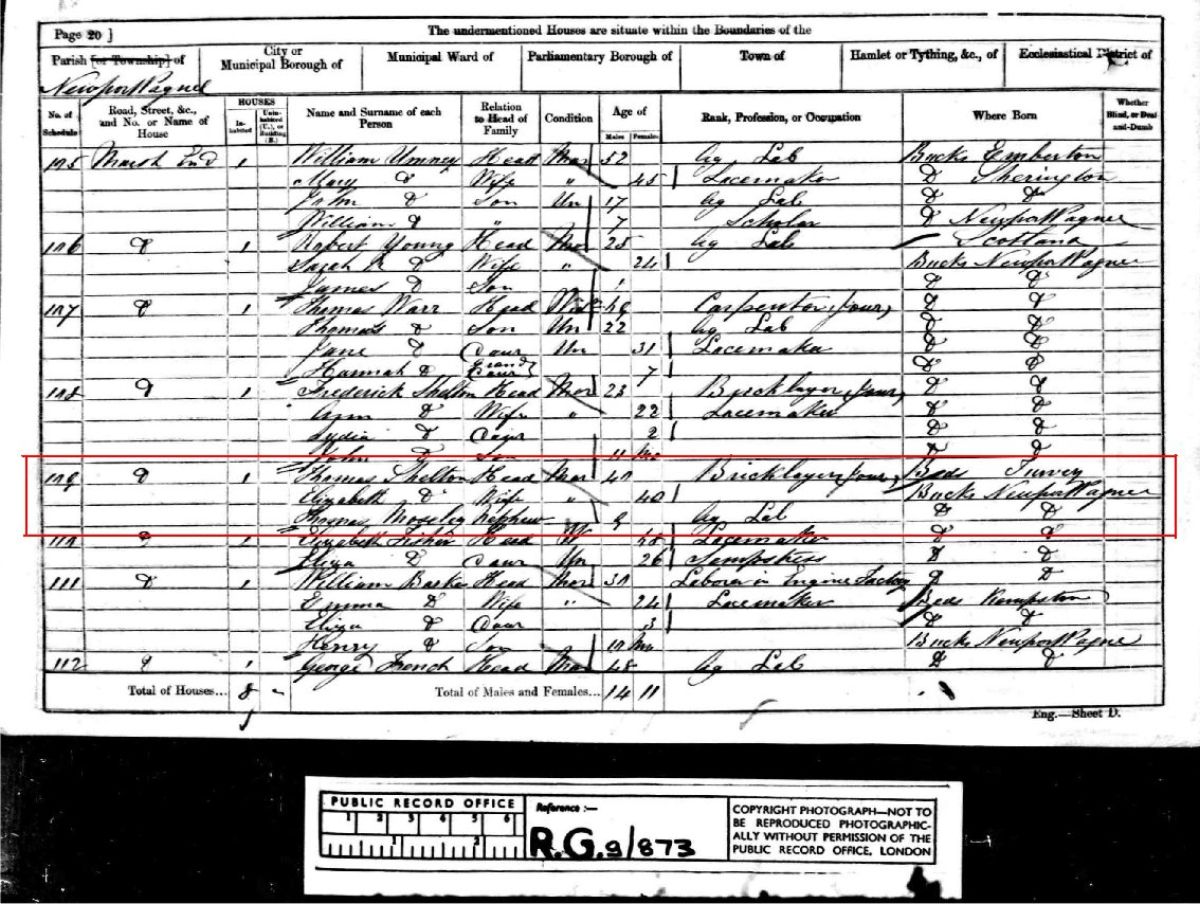 Page 20 ] The undermentioned Houses are situate within the Boundaries of the
Parish [or Township] of City or Municipal Borough of Municipal Ward of Parliamentary Borough of Town of Hamlet or Tything, &c., of Ecclesiastical District of
Newport Pagnel
No. of Schedule Road, Street, &c., and No. or Name of House HOUSES Inhabited Uninhabited (U.), or Building (B.) Name and Surname of each Person Relation to Head of Family Condition Age of Males Females Rank, Profession, or Occupation Where Born Whether Blind, or Deaf-and-Dumb
105 Marsh End 1 William Umney Head Mar 52 Ag Lab Bucks Emberton
Mary D Wife " 45 Lacemaker D Sherington
John D Son Un 17 Ag Lab D D
William D " 7 Scholar D Newport Pagnel
106 D 1 Robert Young Head Mar 25 Ag Lab Scotland
Sarah D Wife " 24 Bucks Newport Pagnel
James D Son 1 D D
107 D 1 Thomas Warr Head Carpenter Jour, D D
Thomas D Son Un 22 Ag Lab D D
Jane D Daur Un 31 Lacemaker D D
Hannah D Grand Daur 7 D D
108 D 1 Frederick Shelton Head Mar 23 Bricklayer Jour, D D
Ann D Wife " 22 Lacemaker D D
Lydia D Daur 2 D D
John D Son 11 Mo D D
109 D 1 Thomas Shelton Head Mar 40 Bricklayer Jour, Beds Turvey
Elizabeth D Wife " 40 Bucks Newport Pagnel
Thomas Moseley Nephew Ag Lab D D
110 D 1 Elizabeth Fisher Head W 48 Lacemaker D D
Eliza D Daur Un 26 Sempstress D D
111 D 1 William Barker Head Mar 30 Laborer in Engine Factory D D
Emma D Wife " 24 Lacemaker Beds Kempston
Eliza D Daur 3 D D
Henry D Son 10 Mo Bucks Newport Pagnel
112 D 1 George French Head Mar 48 Ag Lab D D
Total of Houses... 8 Total of Males and Females... 14 11
Eng.—Sheet D.
PUBLIC RECORD OFFICE Reference :—
1 2 3 4 5 6
1 2
R.G. 9/873
COPYRIGHT PHOTOGRAPH—NOT TO
BE REPRODUCED PHOTOGRAPHIC-
ALLY WITHOUT PERMISSION OF THE
PUBLIC RECORD OFFICE, LONDON